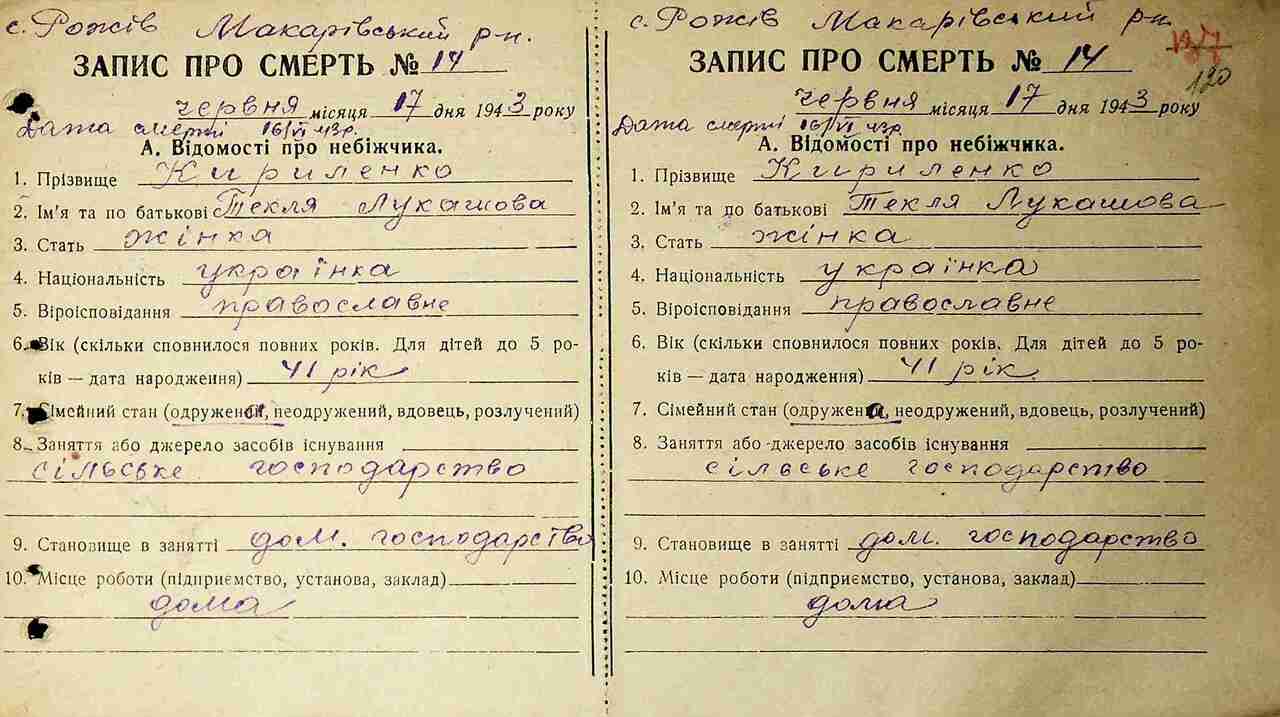 с. Рожів Макарівський р-н.
ЗАПИС ПРО СМЕРТЬ № 14
червня місяця 17 дня 1943 року
Дата смерті 16/VI 43р.
А. Відомості про небіжчика.
1. Прізвище Кириленко
2. Ім'я та по батькові Текля Лукашова
3. Стать жінка
4. Національність українка
5. Віроісповідання православне
6. Вік (скільки сповнилося повних років. Для дітей до 5 ро-
ків — дата народження) 41 рік
7. Сімейний стан (одружена, неодружений, вдовець, розлучений)
8. Заняття або джерело засобів існування
сільське господарство
9. Становище в занятті дом. господарство
10. Місце роботи (підприємство, установа, заклад)
дома
с. Рожів Макарівський р-н.
137
120
ЗАПИС ПРО СМЕРТЬ № 14
червня місяця 17 дня 1943 року
Дата смерті 16/VI 43р.
А. Відомості про небіжчика.
1. Прізвище Кириленко
2. Ім'я та по батькові Текля Лукашова
3. Стать жінка
4. Національність українка
5. Віроісповідання православне
6. Вік (скільки сповнилося повних років. Для дітей до 5 ро-
ків — дата народження) 41 рік.
7. Сімейний стан (одружена, неодружений, вдовець, розлучений)
8. Заняття або джерело засобів існування
сільське господарство
9. Становище в занятті дом. господарство
10. Місце роботи (підприємство, установа, заклад)
дома